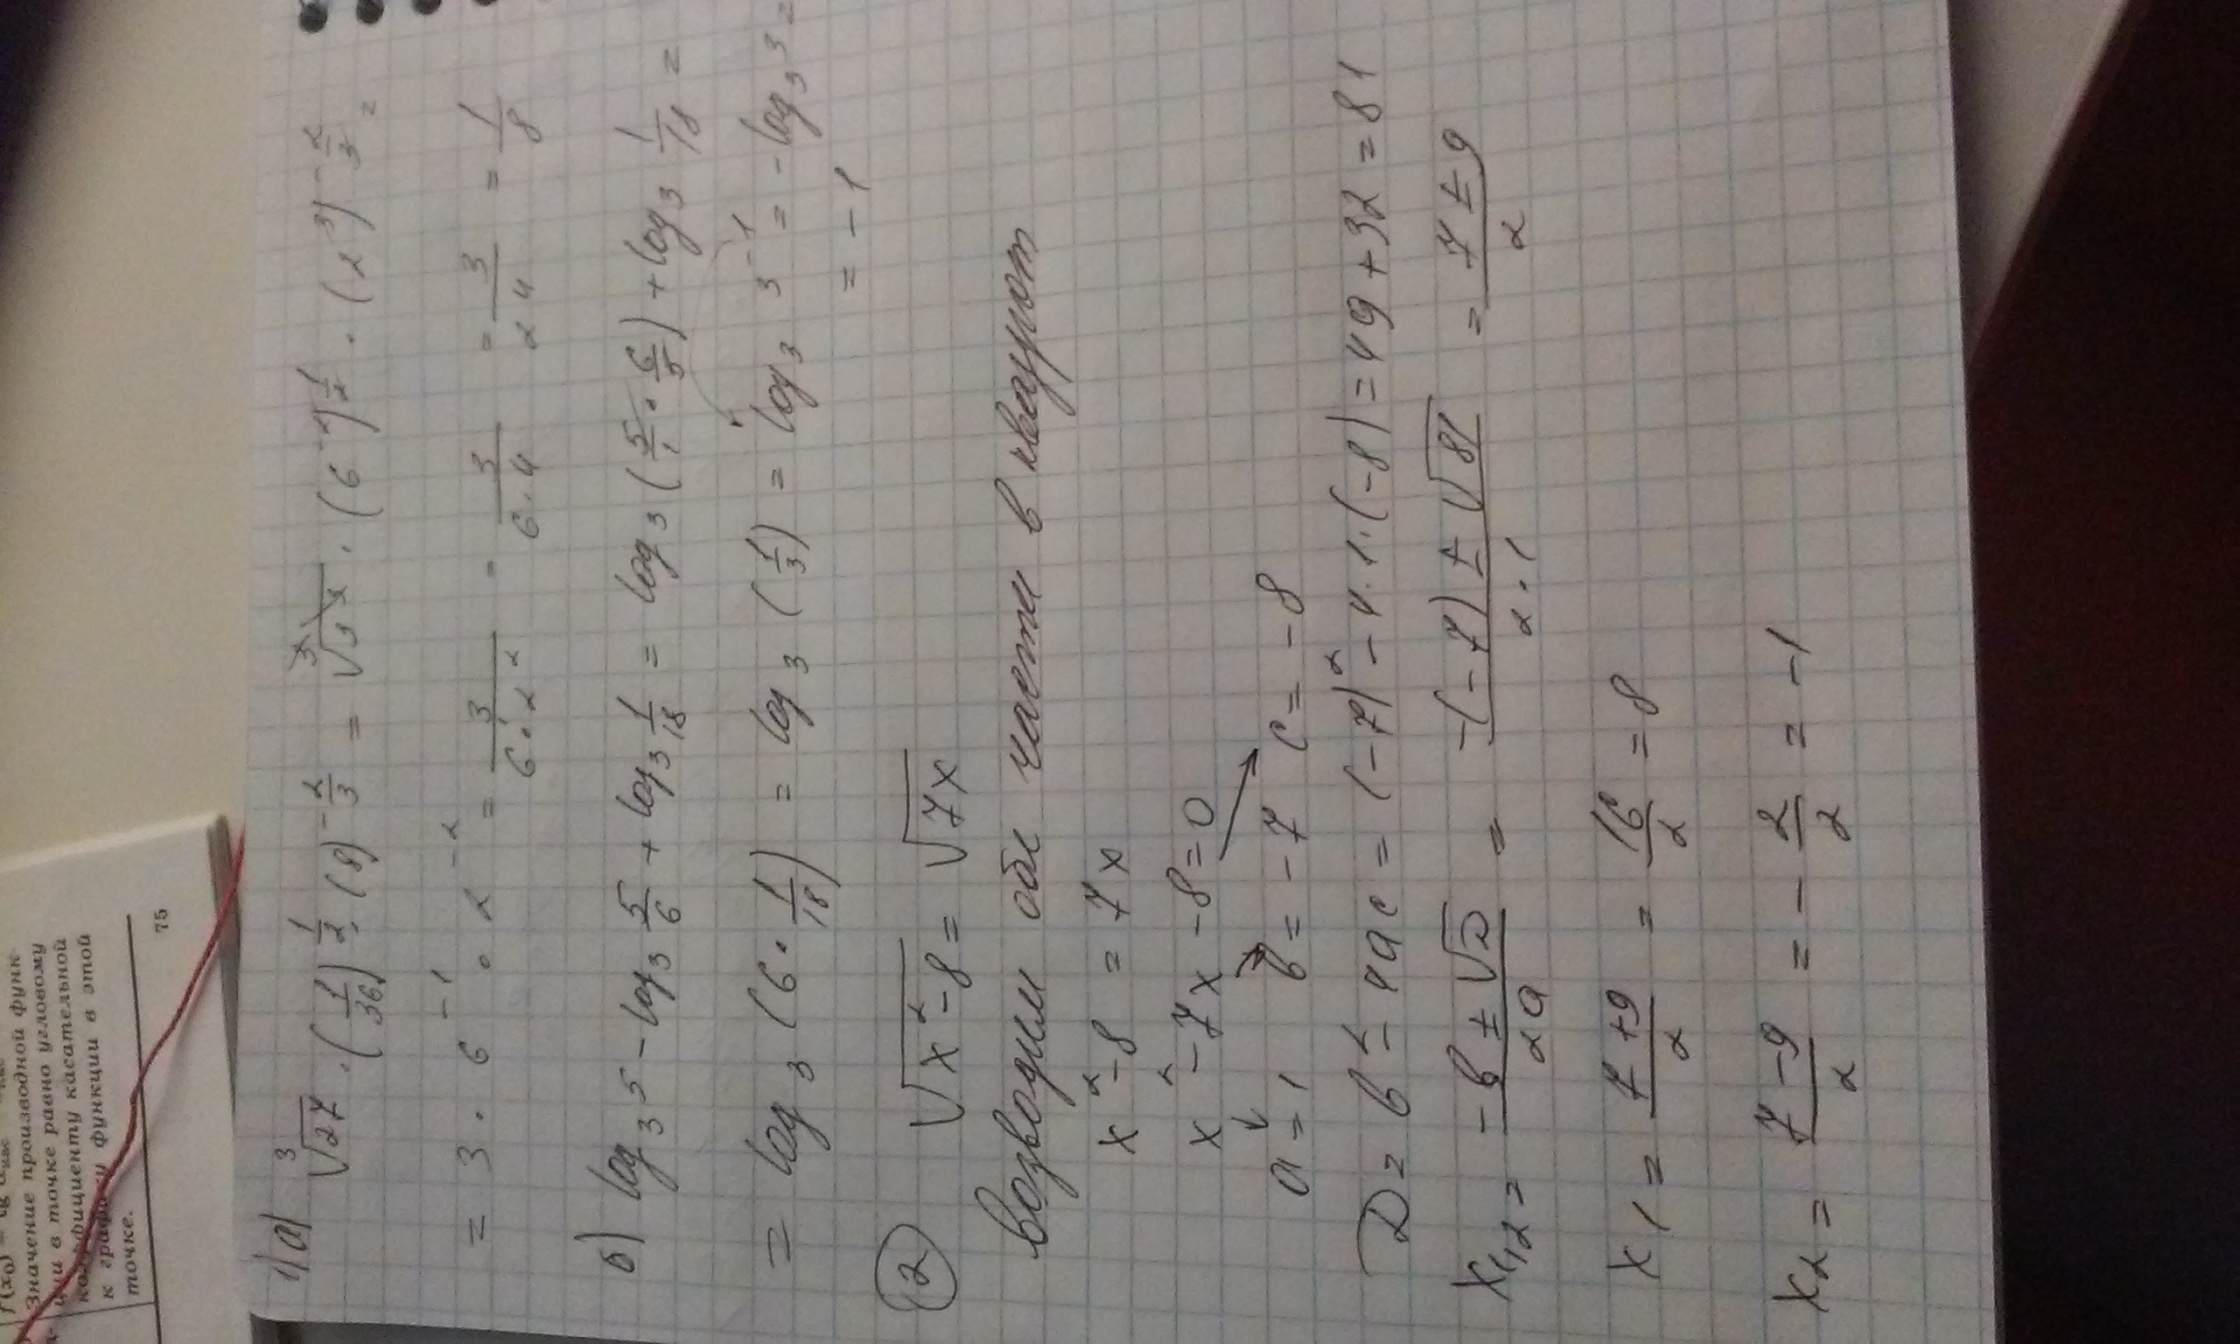 f(x₀) = tg α
Значение производной функ-
ции в точке равно угловому
коэффициенту касательной
к графику функции в этой
точке.
75
1) а) ∛27 · (1/36)^(1/2) · (8)^(-2/3) = ∛3³ · (6⁻²)^(1/2) · (2³)^(-2/3) =
= 3 · 6⁻¹ · 2⁻² = 3/(6·2²) = 3/(6·4) = 3/24 = 1/8
б) log₃5 - log₃ 5/6 + log₃ 1/18 = log₃(5/1 · 6/5) + log₃ 1/18 =
= log₃(6 · 1/18) = log₃(1/3) = log₃ 3⁻¹ = -log₃3 =
= -1
2 √(x²-8) = √(7x)
Возводим обе части в квадрат
x²-8 = 7x
x²-7x-8=0
a=1 b=-7 c=-8
D= b²-4ac = (-7)²-4·1·(-8)=49+32=81
x₁,₂= (-b±√D)/2a = (-(-7)±√81)/(2·1) = (7±9)/2
x₁ = (7+9)/2 = 16/2 = 8
x₂ = (7-9)/2 = -2/2 = -1